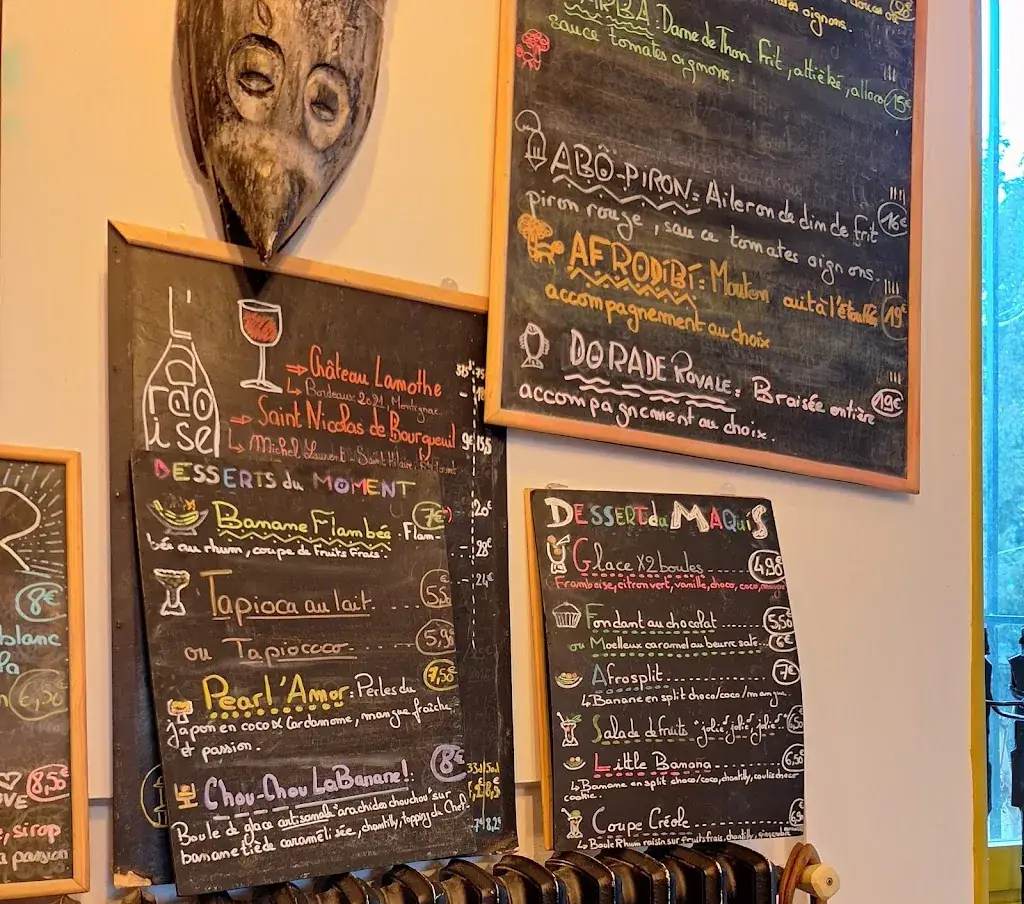 Darne de Thon frit, attiéké, alloco 15€
sauce tomates oignons.
ABÔ-PIRON: Aileron de dim de frit 16€
piron rouge, sauce tomates oignons.
AFRODIBI: Mouton cuit à l'étouffé 19€
accompagnement au choix
DORADE ROYALE: Braisée entière 19€
accompagnement au choix.
ardoise
Château Lamothe
Bordeaux 2021, Montignac
Saint Nicolas de Bourgueil
Michel Laurent
20€
28€
24€
DESSERTS du MOMENT
Banane Flambée 7€
Flam-
bée au rhum, coupe de fruits frais.
Tapioca au lait
ou Tapiococo 5,9€
Pearl'Amor: Perles du 7,50€
Japon en coco & Cardamome, mangue fraîche,
et passion.
Chou-Chou LaBanane! 8€
Boule de glace artisanale "arachides chouchou" sur
banane tiède caramélisée, chantilly, topping du Chef.
DESSERT du MAQUIS
Glace x2 boules 4,90€
Framboise, citron vert, vanille, choco, coco, mangue
Fondant au chocolat 5,50€
ou Moelleux caramel au beurre salé 6€
Afrosplit 7€
Banane en split choco/coco/mangue
Salade de fruits "jolie, jolie, jolie"
Little Banana 6,50€
Banane en split choco/coco, chantilly, coulis choco
cookie.
Coupe Créole
Boule Rhum raisin sur fruits frais, chantilly, gingembre
8€
blanc
6,50€
8,50€
sirop
passion